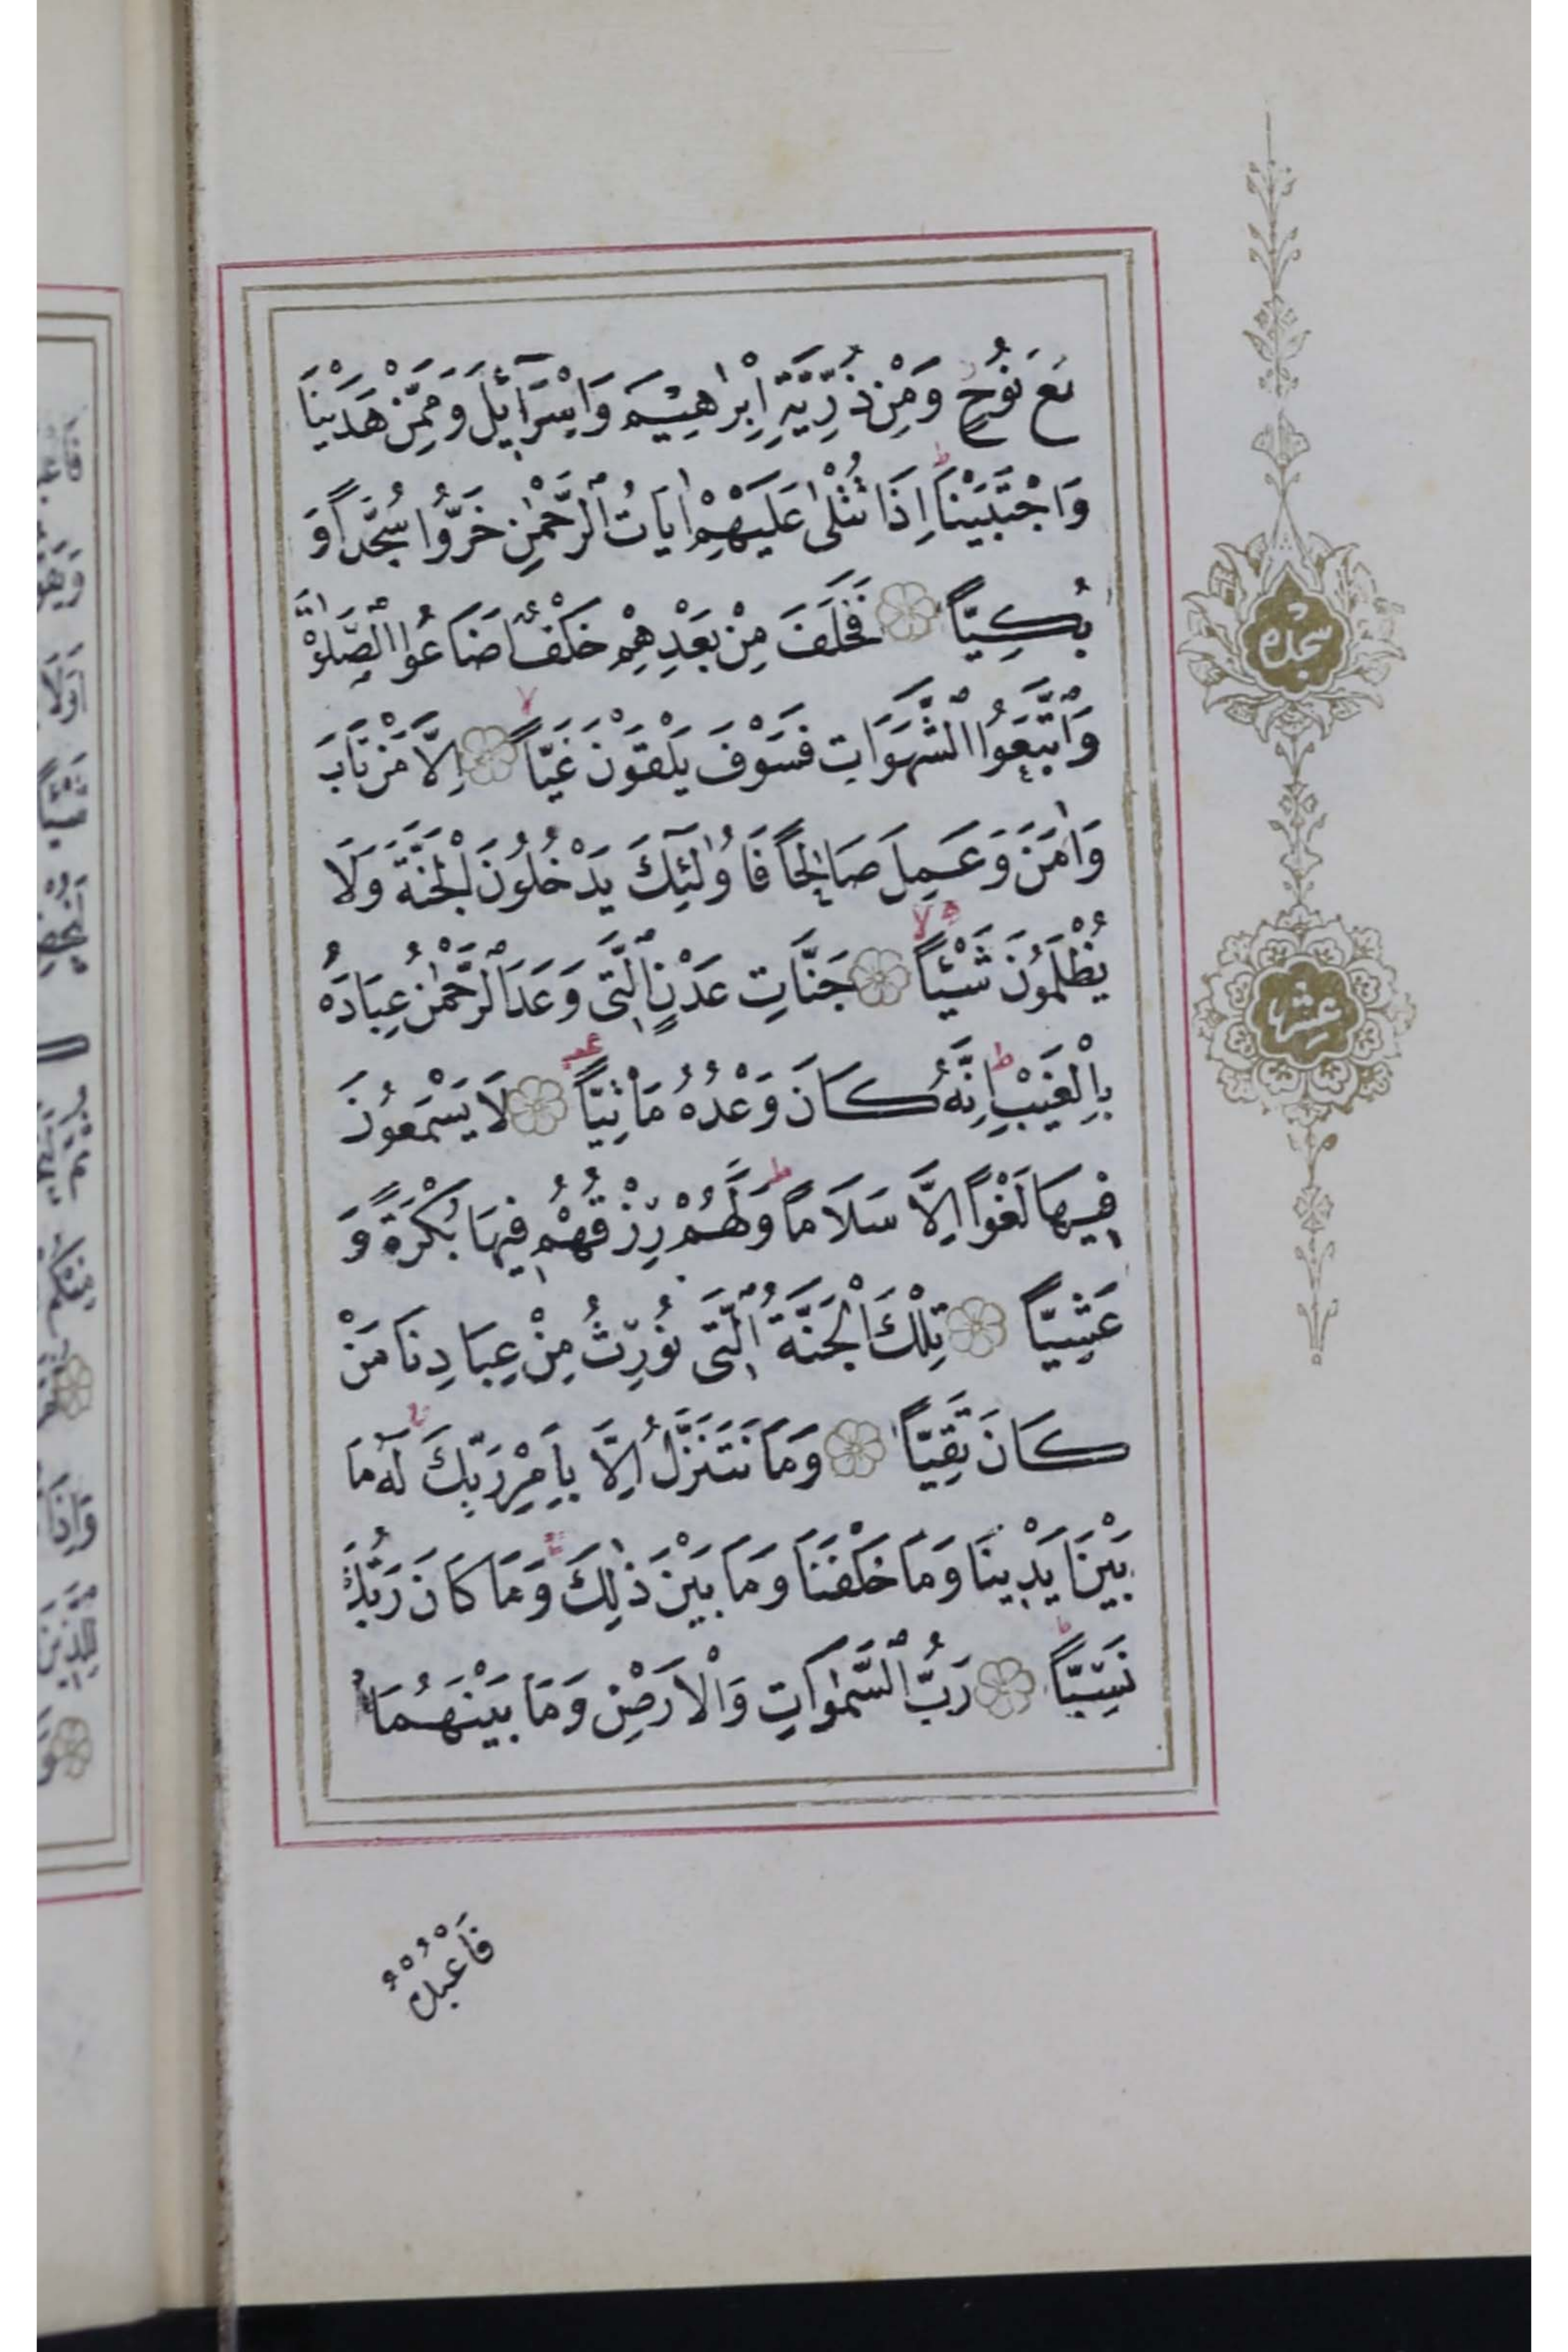 مَعَ نُوحٍ وَمِنْ ذُرِّيَّةِ اِبْرٰهِيمَ وَاِسْرَآئِلَ وَمِمَّنْ هَدَيْنَا
وَاجْتَبَيْنَا اِذَا تُتْلٰى عَلَيْهِمْ اٰيَاتُ الرَّحْمٰنِ خَرُّوا سُجَّدًا وَ
بُكِيًّا فَخَلَفَ مِنْ بَعْدِهِمْ خَلْفٌ اَضَاعُوا الصَّلٰوةَ
وَاتَّبَعُوا الشَّهَوَاتِ فَسَوْفَ يَلْقَوْنَ غَيًّا اِلَّا مَنْ تَابَ
وَاٰمَنَ وَعَمِلَ صَالِحًا فَاُولٰٓئِكَ يَدْخُلُونَ الْجَنَّةَ وَلَا
يُظْلَمُونَ شَيْئًا جَنَّاتِ عَدْنٍ الَّتِى وَعَدَ الرَّحْمٰنُ عِبَادَهُ
بِالْغَيْبِ اِنَّهُ كَانَ وَعْدُهُ مَاْتِيًّا لَا يَسْمَعُونَ
فِيهَا لَغْوًا اِلَّا سَلَامًا وَلَهُمْ رِزْقُهُمْ فِيهَا بُكْرَةً وَ
عَشِيًّا تِلْكَ الْجَنَّةُ الَّتِى نُورِثُ مِنْ عِبَادِنَا مَنْ
كَانَ تَقِيًّا وَمَا نَتَنَزَّلُ اِلَّا بِاَمْرِ رَبِّكَ لَهُ مَا
بَيْنَ اَيْدِينَا وَمَا خَلْفَنَا وَمَا بَيْنَ ذٰلِكَ وَمَا كَانَ رَبُّكَ
نَسِيًّا رَبُّ السَّمٰوَاتِ وَالْاَرْضِ وَمَا بَيْنَهُمَا
فَاعْبُدْهُ
سجده
عشر